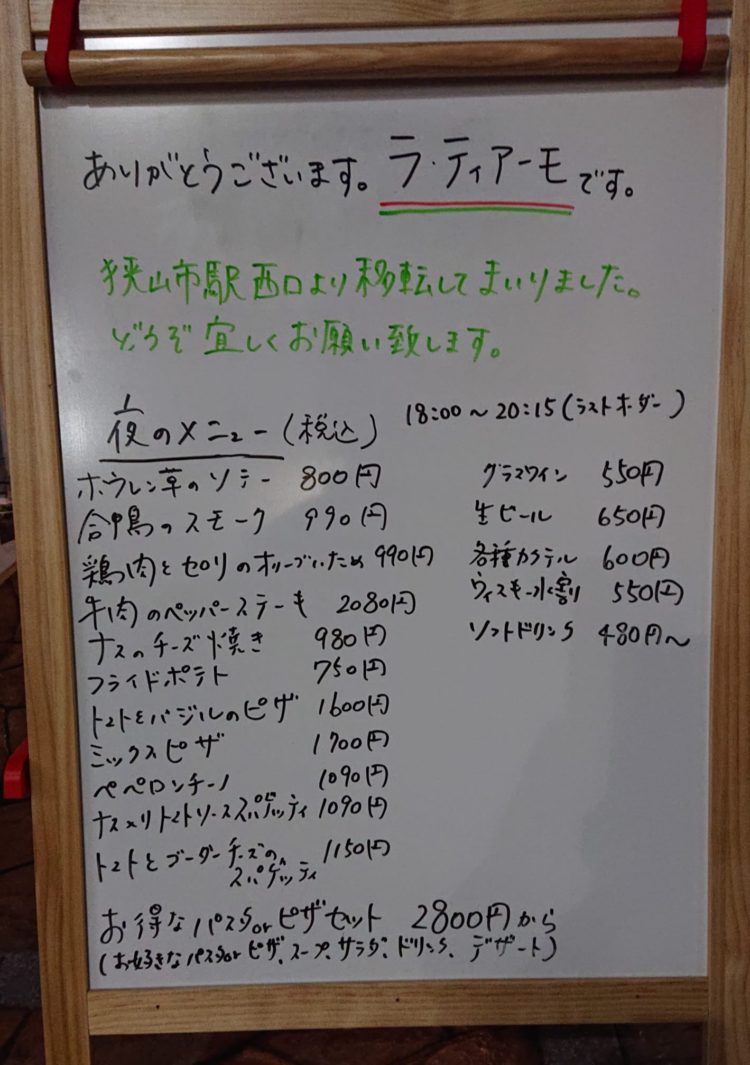 ありがとうございます。ラ・ティアーモです。
狭山市駅西口より移転してまいりました。
どうぞ宜しくお願い致します。
夜のメニュー(税込) 18:00～20:15(ラストオーダー)
ホウレン草のソテー 800円
合鴨のスモーク 990円
鶏肉とセロリのオリーブいため 990円
牛肉のペッパーステーキ 2080円
ナスのチーズ焼き 980円
フライドポテト 750円
トマトとバジルのピザ 1600円
ミックスピザ 1700円
ペペロンチーノ 1090円
ナス入りトマトソーススパゲッティ 1090円
トマトとゴーダーチーズの 1150円
スパゲッティ
グラスワイン 550円
生ビール 650円
各種カクテル 600円
ウィスキー水割 550円
ソフトドリンク 480円～
お得なパスタorピザセット 2800円から
(お好きなパスタorピザ、スープ、サラダ、ドリンク、デザート)